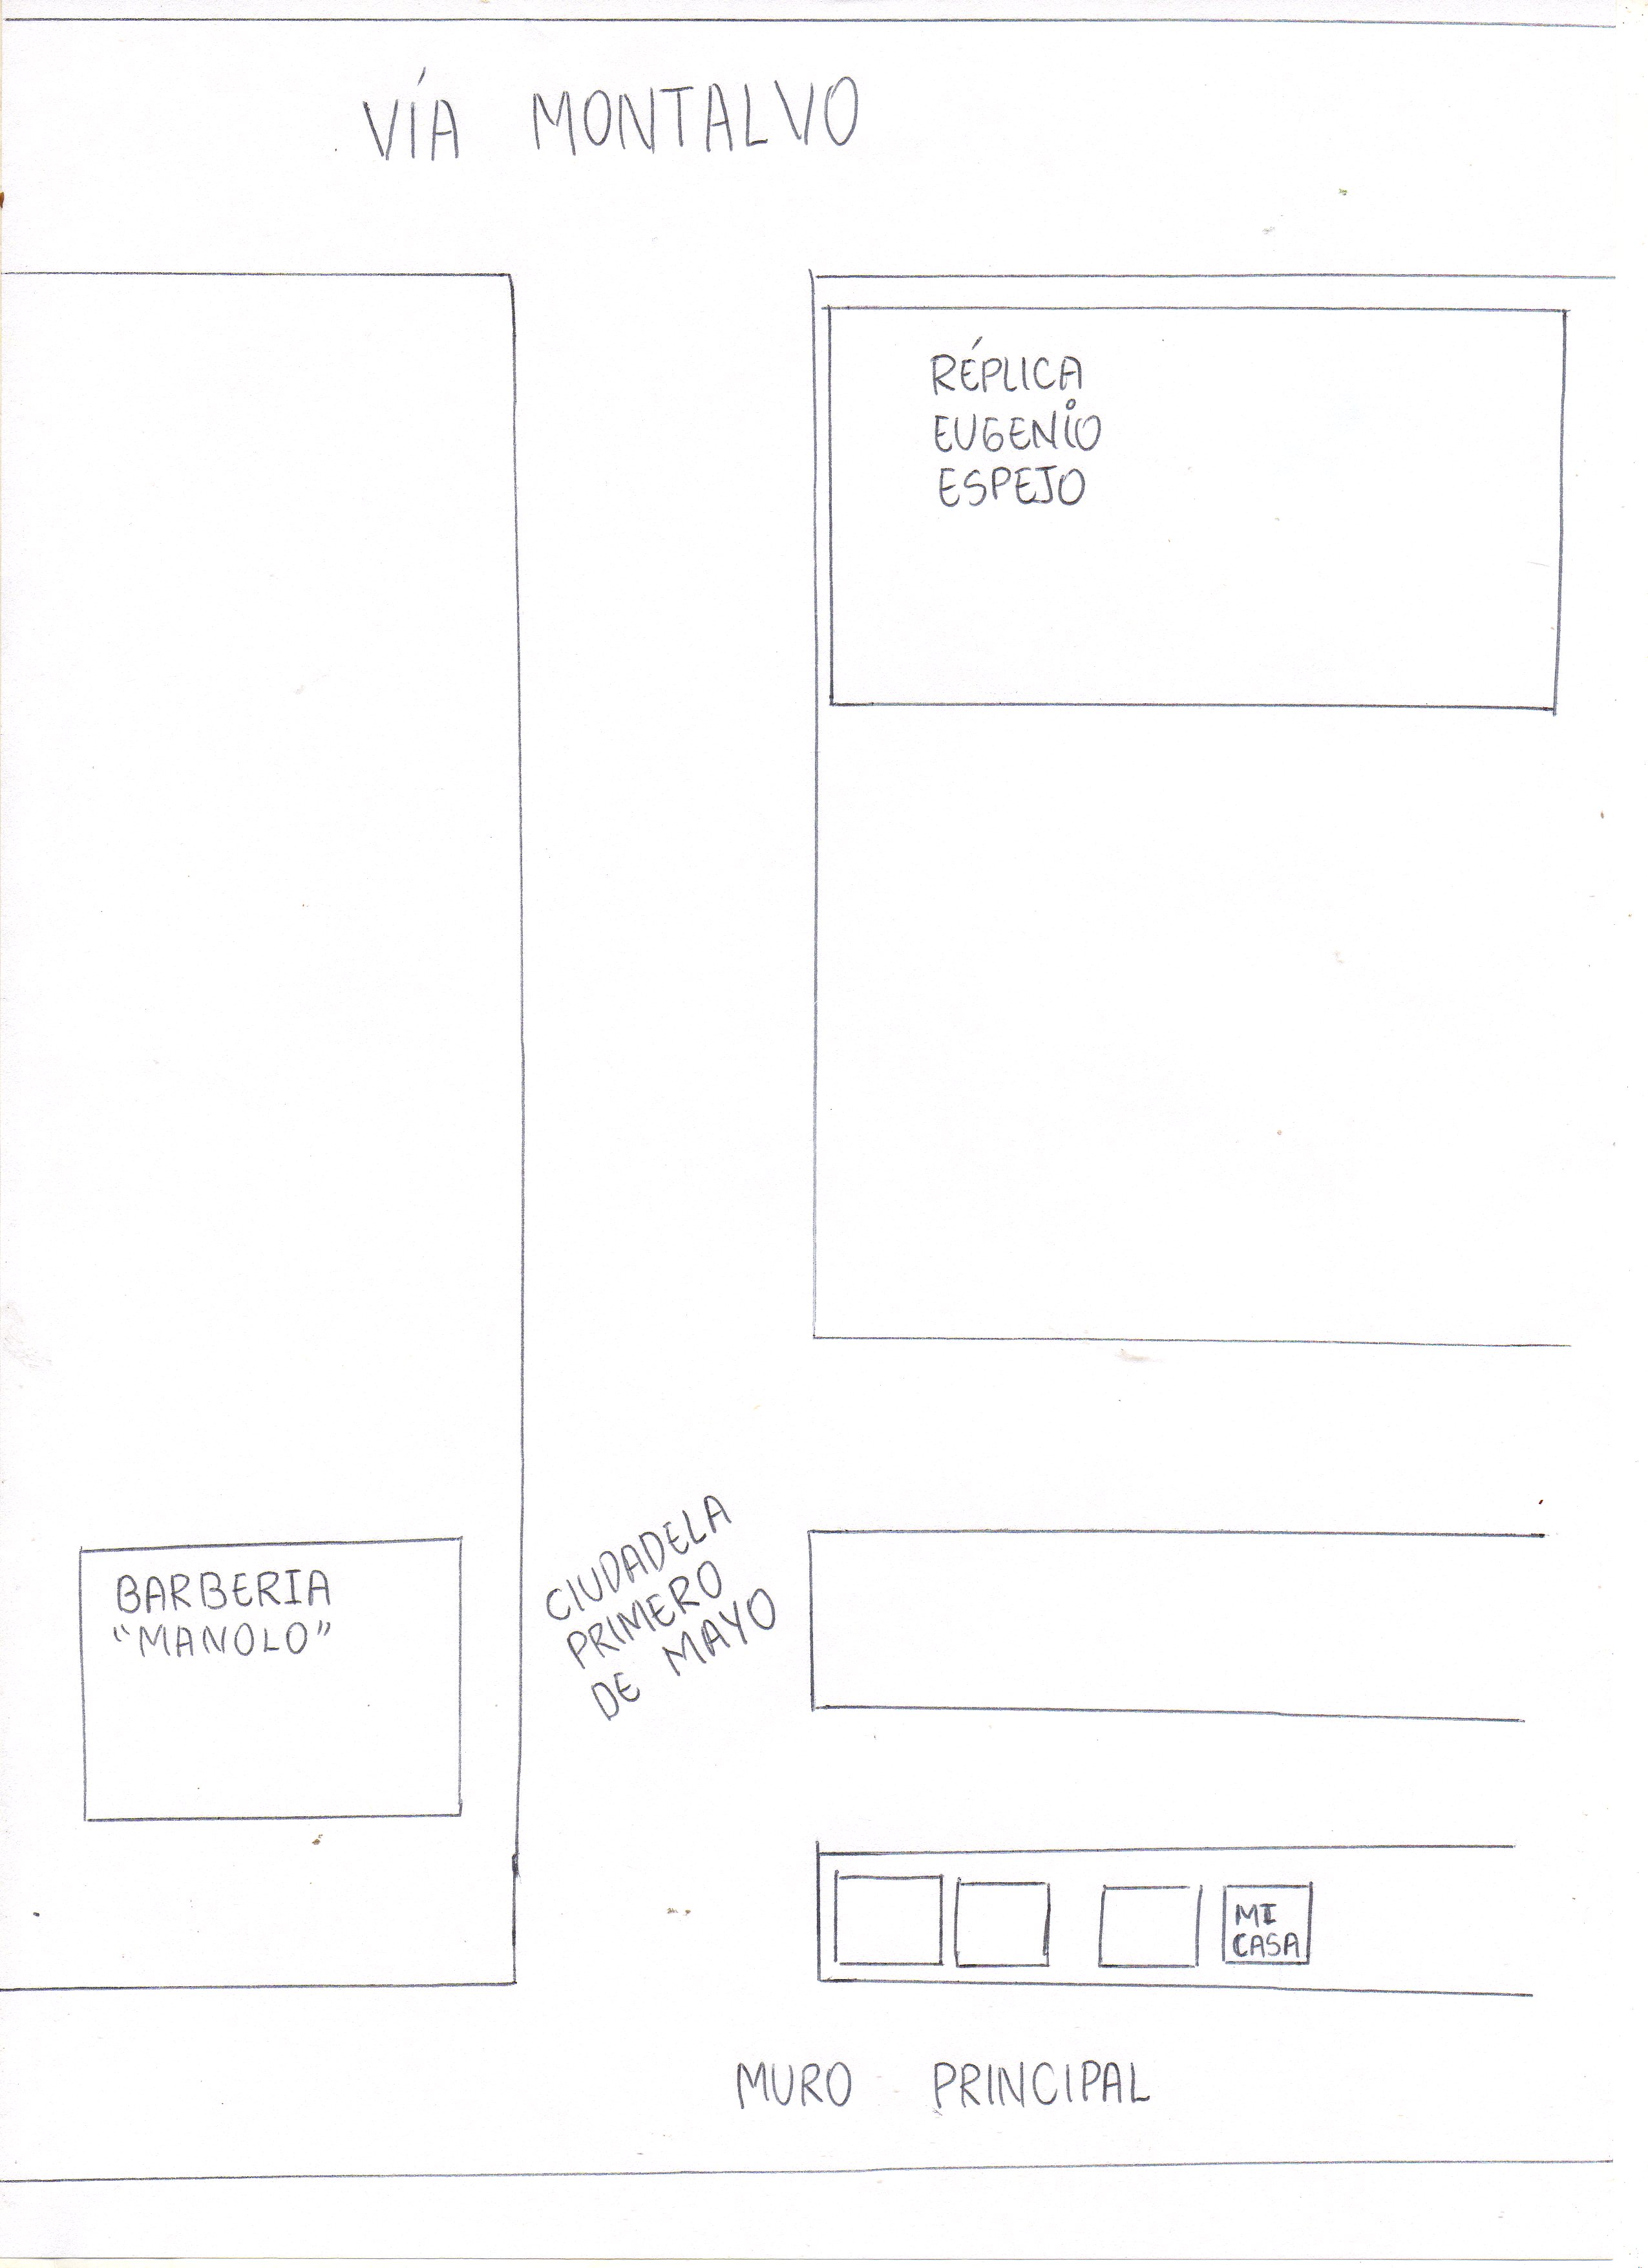 VÍA MONTALVO
RÉPLICA
EUGENIO
ESPEJO
BARBERIA
"MANOLO"
CIUDADELA
PRIMERO
DE MAYO
MI
CASA
MURO PRINCIPAL